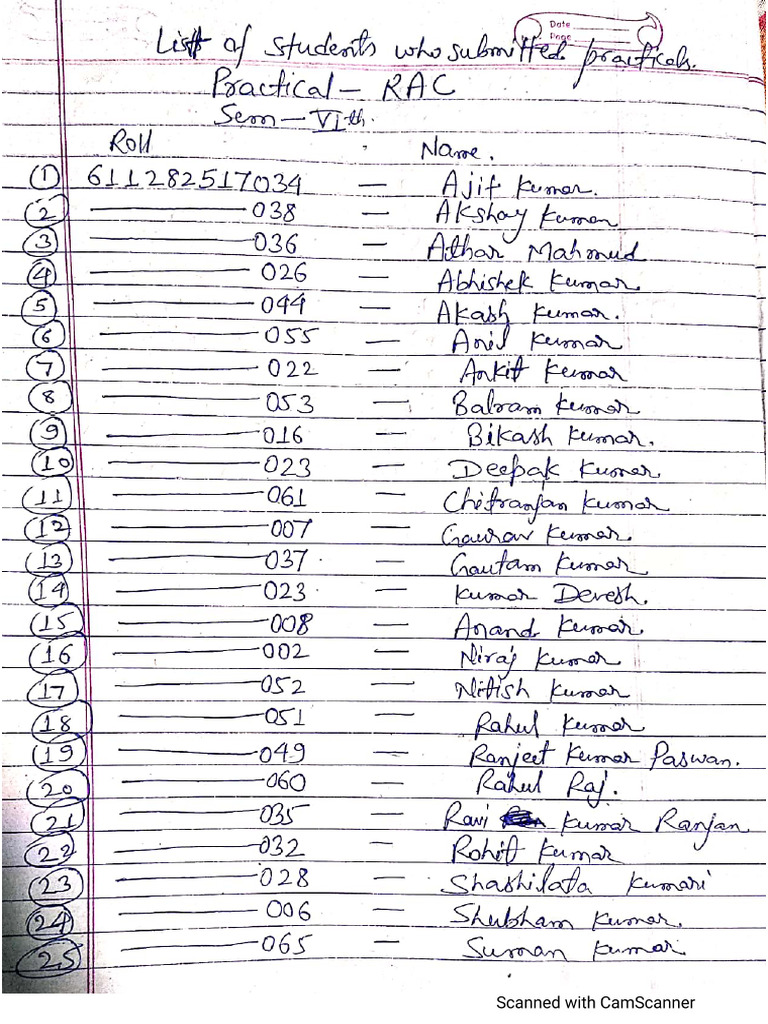 Date
Page
List of students who submitted practicals.
Practical - RAC
Sem - VIth.
Roll Name.
1 611282517034 - Ajit Kumar.
2 ——— 038 - Akshay Kumar
3 ——— 036 - Athar Mahmud
4 ——— 026 - Abhishek Kumar.
5 ——— 044 - Akash Kumar.
6 ——— 055 - Anil Kumar
7 ——— 022 - Ankit Kumar
8 ——— 053 - Balram Kumar
9 ——— 016 - Bikash Kumar.
10 ——— 023 - Deepak Kumar
11 ——— 061 - Chitranjan Kumar
12 ——— 007 - Gaurav Kumar.
13 ——— 037 - Gautam Kumar
14 ——— 023 - Kumar Devesh.
15 ——— 008 - Anand Kumar
16 ——— 002 - Niraj Kumar
17 ——— 052 - Nitish Kumar
18 ——— 051 - Rahul Kumar
19 ——— 049 - Ranjeet Kumar Paswan.
20 ——— 060 - Rahul Raj.
21 ——— 035 - Ravi Kumar Ranjan
22 ——— 032 - Rohit Kumar
23 ——— 028 - Shashilata Kumari
24 ——— 006 - Shubham Kumar.
25 ——— 065 - Suman Kumar
Scanned with CamScanner